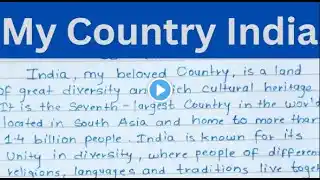 My Country India
India, my beloved Country, is a land
of great diversity and rich cultural heritage
It is the Seventh-largest Country in the world
located in South Asia and home to more than
1.4 billion people. India is known for its
Unity in diversity, where people of different
religions, languages and traditions live together